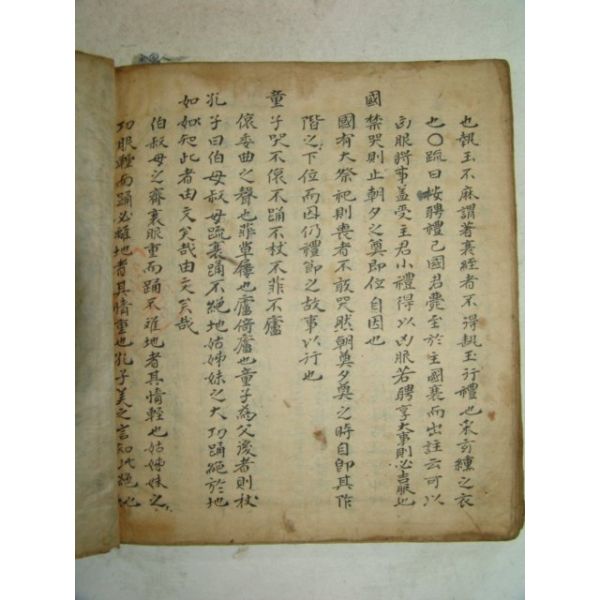 也執玉不麻謂著衰絰者不得執玉行禮也采玄纁之衣
也〇疏曰按聘禮己國君薨至於主國衰而出註云可以
凶服將事盖受主君小禮得以凶服若聘享大事則必吉服也
國禁哭則止朝夕之奠即位自因也
國有大祭祀則喪者不敢哭然朝奠夕奠之時自即其阼
階之下位而因仍禮節之故事以行也
童子哭不偯不踊不杖不菲不廬
偯委曲之聲也菲草屨也廬倚廬也童子為父後者則杖
孔子曰伯母叔母疏衰踊不絕地姑姊妹之大功踊絕於地
如知此者由文矣哉由文矣哉
伯叔母之齊衰服重而踊不離地者其情輕也姑姊妹之
功服輕而踊必離地者其情重也孔子美之言知此絕地